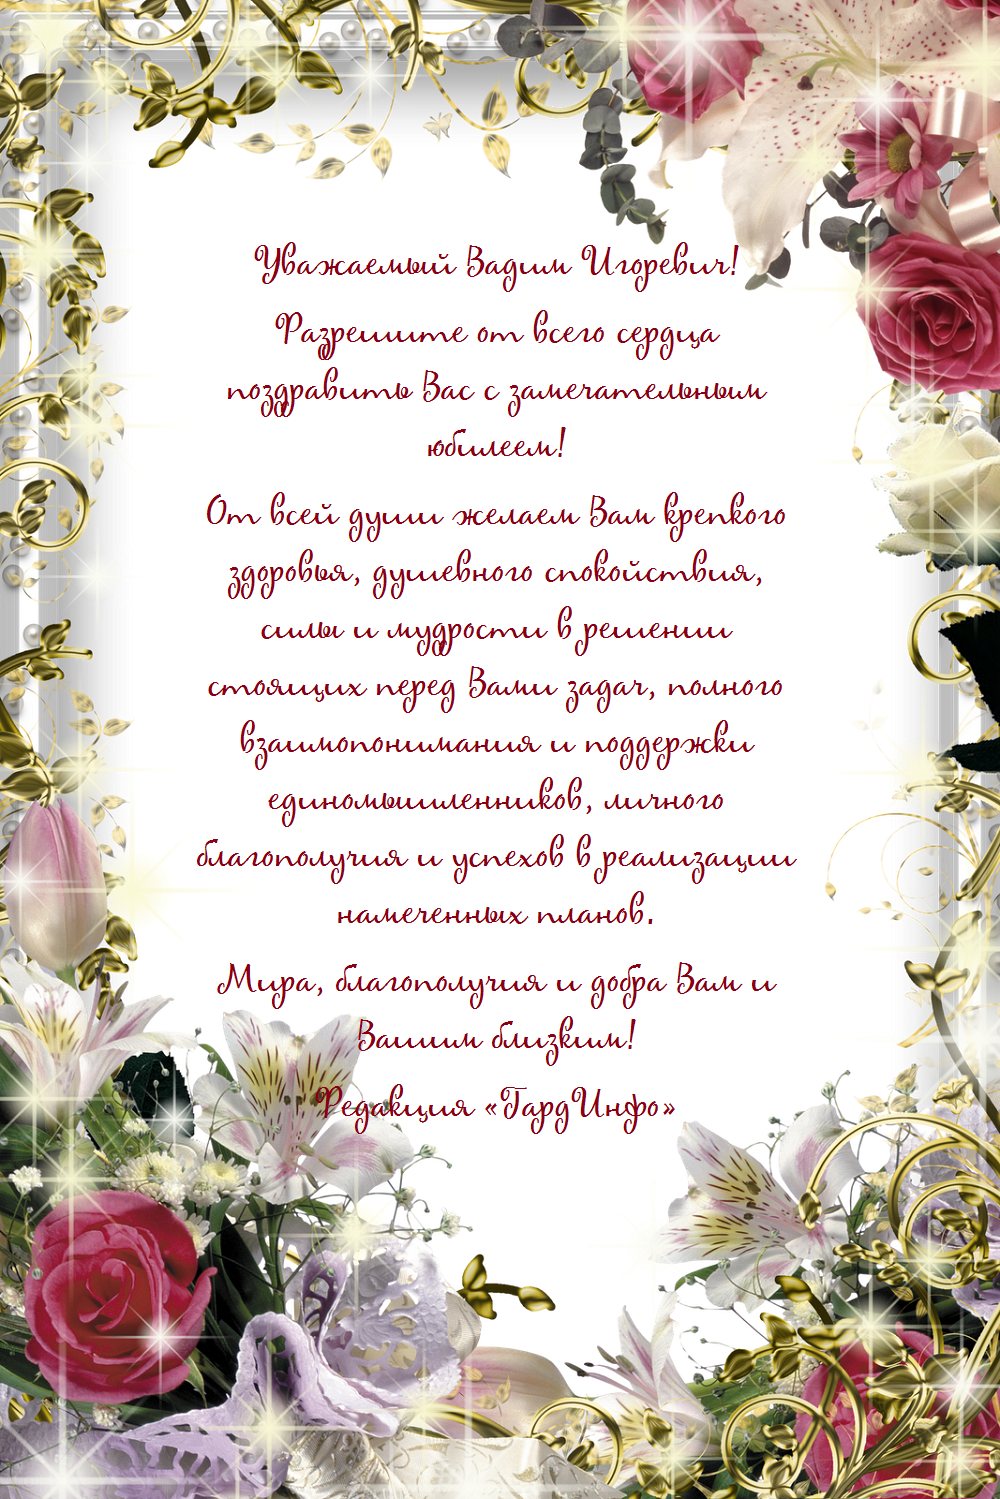 Уважаемый Вадим Игоревич!
Разрешите от всего сердца
поздравить Вас с замечательным
юбилеем!
От всей души желаем Вам крепкого
здоровья, душевного спокойствия,
силы и мудрости в решении
стоящих перед Вами задач, полного
взаимопонимания и поддержки
единомышленников, личного
благополучия и успехов в реализации
намеченных планов.
Мира, благополучия и добра Вам и
Вашим близким!
Редакция «ГардИнфо»